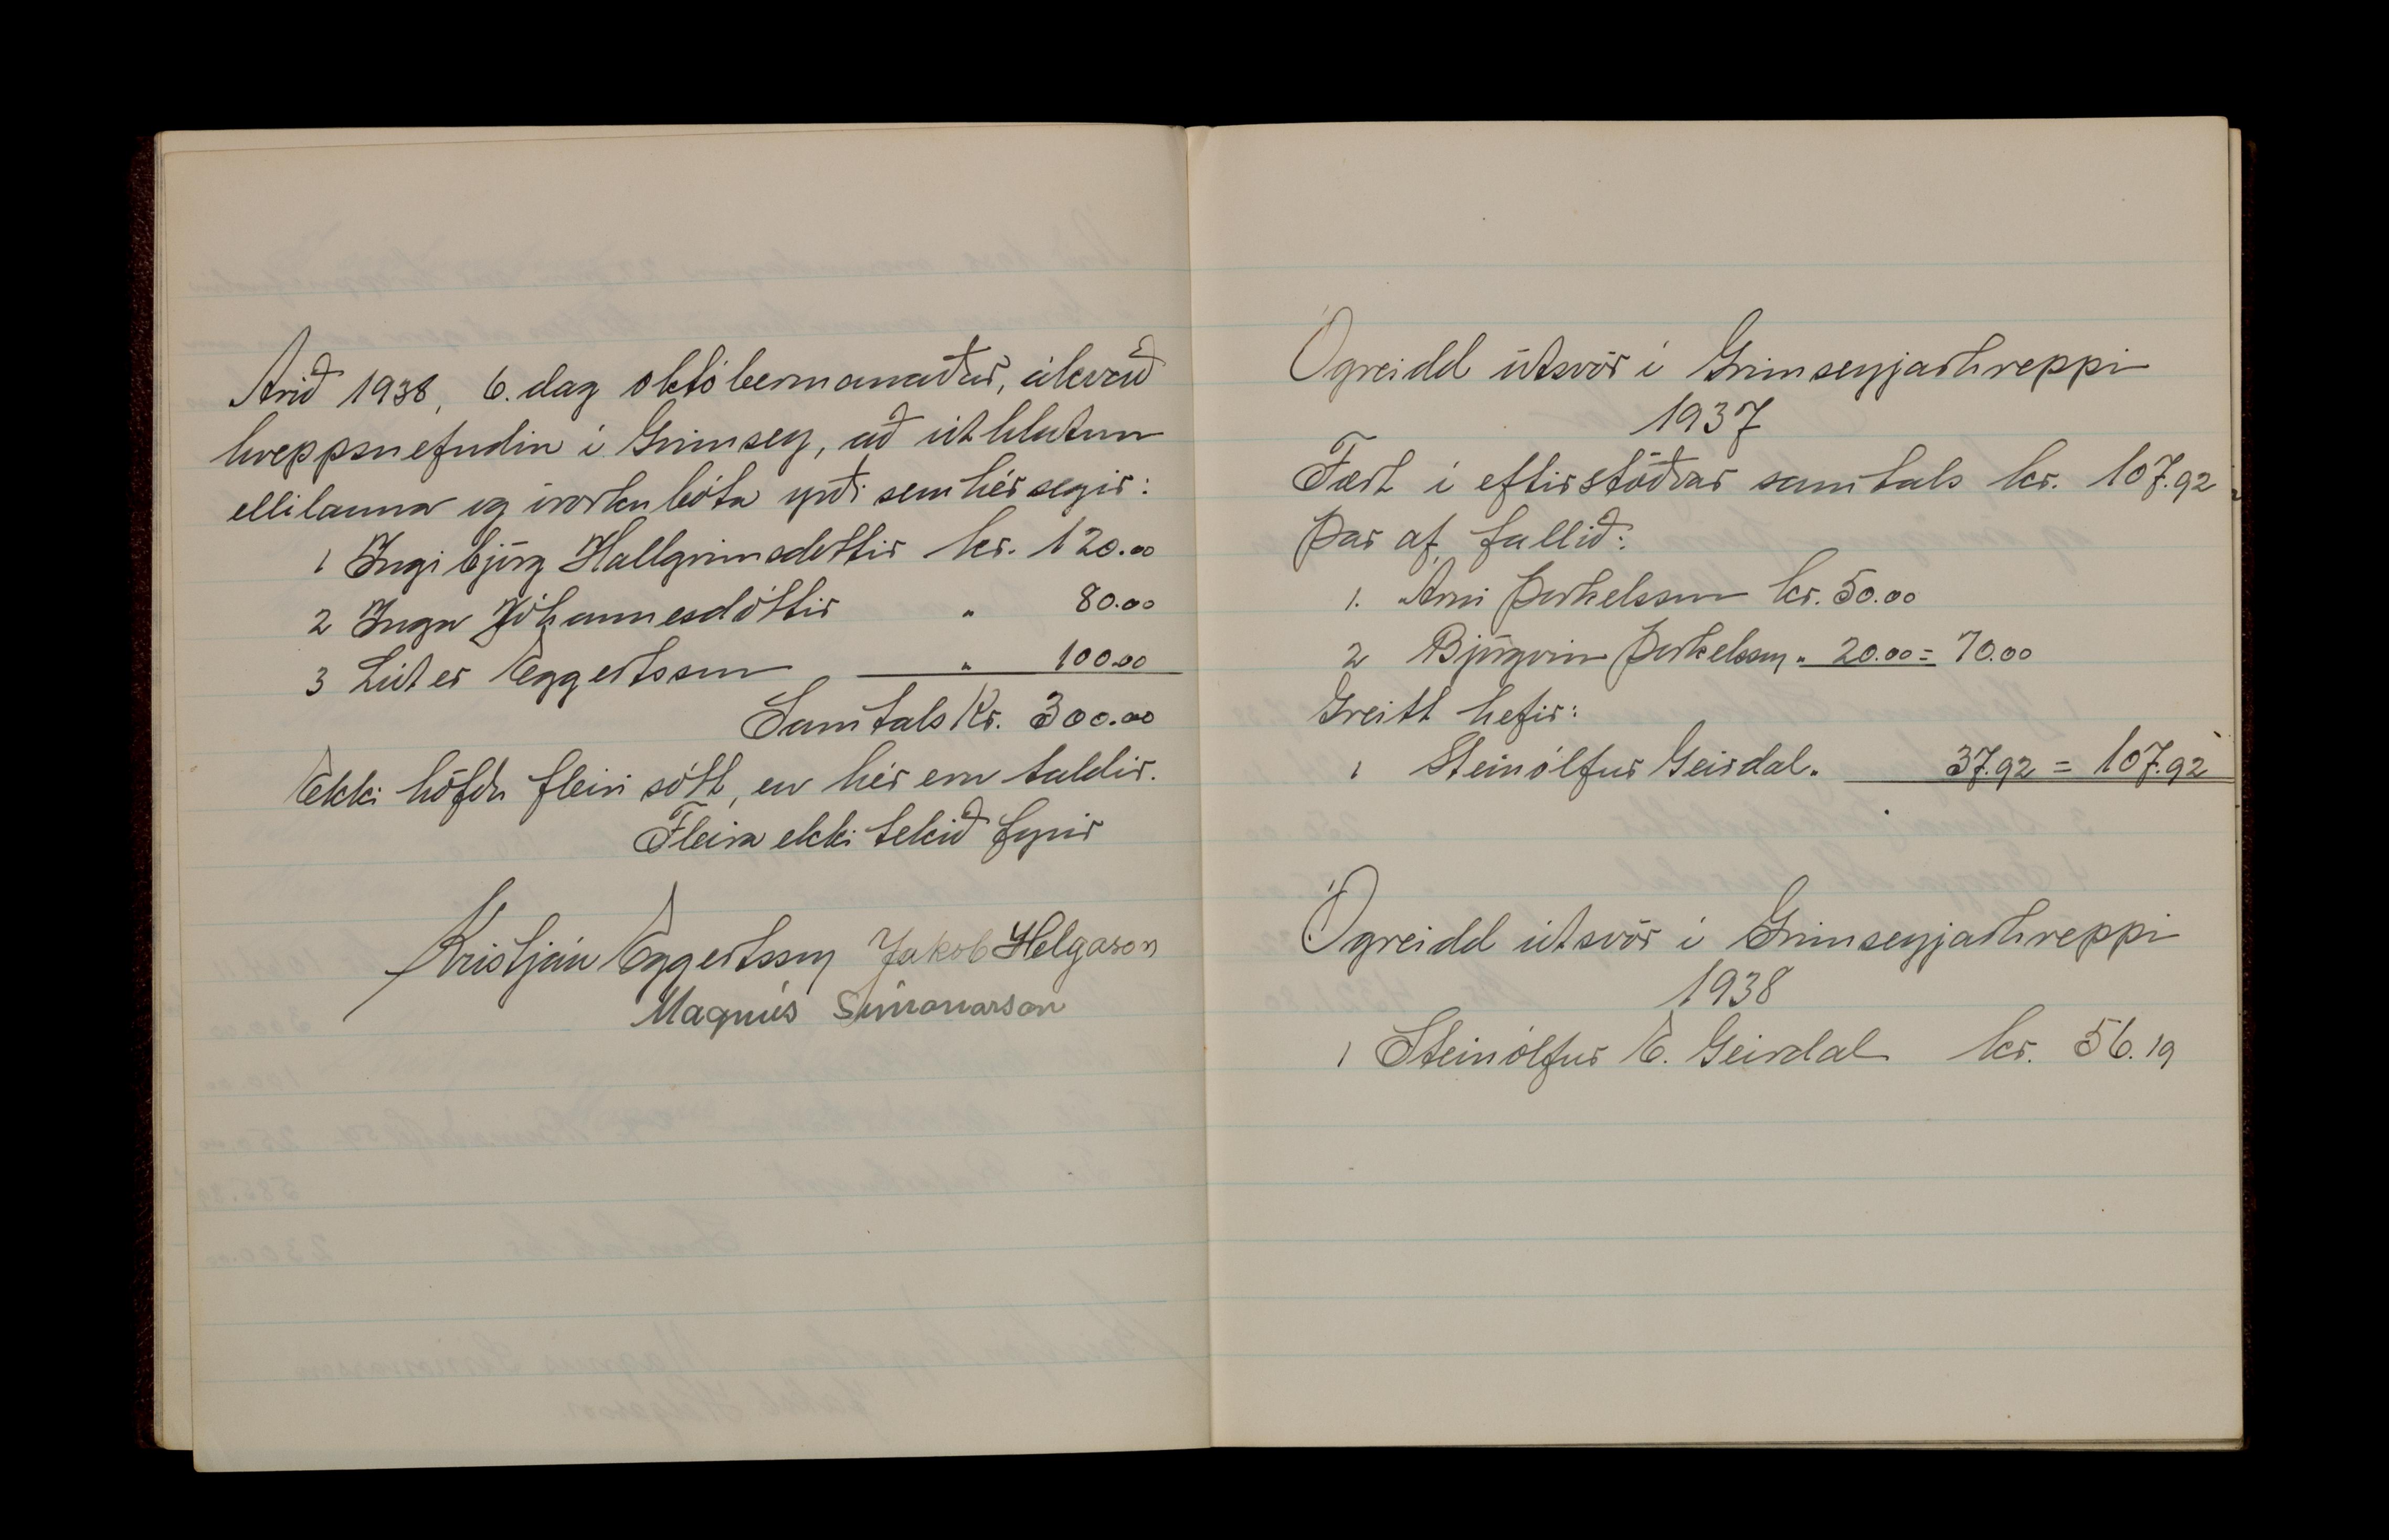 Árið 1938, 6. dag októbermánaðar, ákvað
hreppsnefndin í Grímsey, að úthlutun
ellilauna og örorkubóta yrði sem hér segir:
1 Ingibjörg Hallgrímsdóttir kr. 120.00
2 Inga Jóhannesdóttir " 80.00
3 Lúter Eggertsson " 100.00
Samtals Kr. 300.00
Ekki höfðu fleiri sótt, en hér eru taldir.
Fleira ekki tekið fyrir
Kristján Eggertsson Jakob Helgason
Magnús Símonarson
Ógreidd útsvör í Grímseyjarhreppi
1937
Fært í eftirstöðvar samtals kr. 107.92
Þar af fallið:
1. Árni Þorkelsson kr. 50.00
2 Björgvin Þorkelsson " 20.00 = 70.00
Greitt hefir:
1 Steinólfur Geirdal. 37.92 = 107.92
Ógreidd útsvör í Grímseyjarhreppi
1938
1 Steinólfur E. Geirdal kr. 56.19